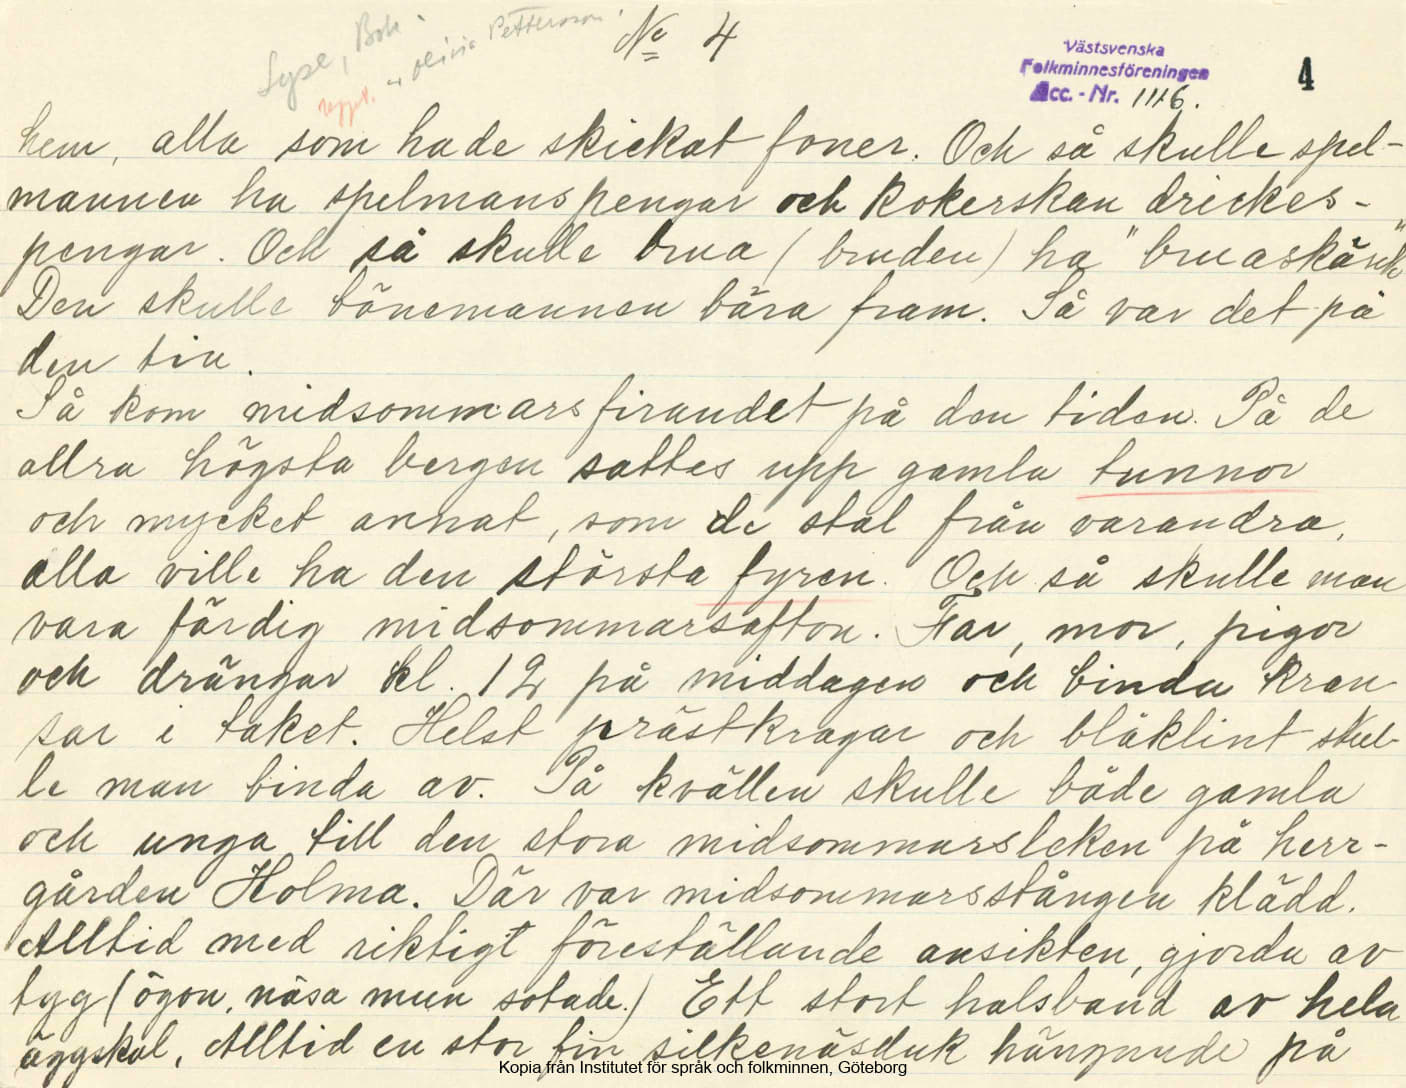 Lyse, Boh.
uppt. av Olivia Pettersson.
No 4
Västsvenska
Folkminnesföreningen
Acc. - Nr. 1116.
4
hem, alla som hade skickat foner. Och så skulle spel-
mannen ha spelmanspengar och kokerskan drickes-
pengar. Och så skulle brua (bruden) ha "bruaskänk"
Den skulle bönemannen bära fram. Så var det på
den tin.
Så kom midsommarsfirandet på den tiden. På de
allra högsta bergen sattes upp gamla tunnor
och mycket annat, som de stal från varandra,
alla ville ha den största fyren. Och så skulle man
vara färdig midsommarsafton. Far, mor, pigor
och drängar kl. 12 på middagen och binda kran-
sar i taket. Helst prästkragar och blåklint skul-
le man binda av. På kvällen skulle både gamla
och unga till den stora midsommarsleken på herr-
gården Holma. Där var midsommarsstången klädd.
Alltid med riktigt föreställande ansikten, gjorda av
tyg (ögon, näsa mun sotade.) Ett stort halsband av hela
äggskal. Alltid en stor fin silkenäsduk hängande på
Kopia från Institutet för språk och folkminnen, Göteborg